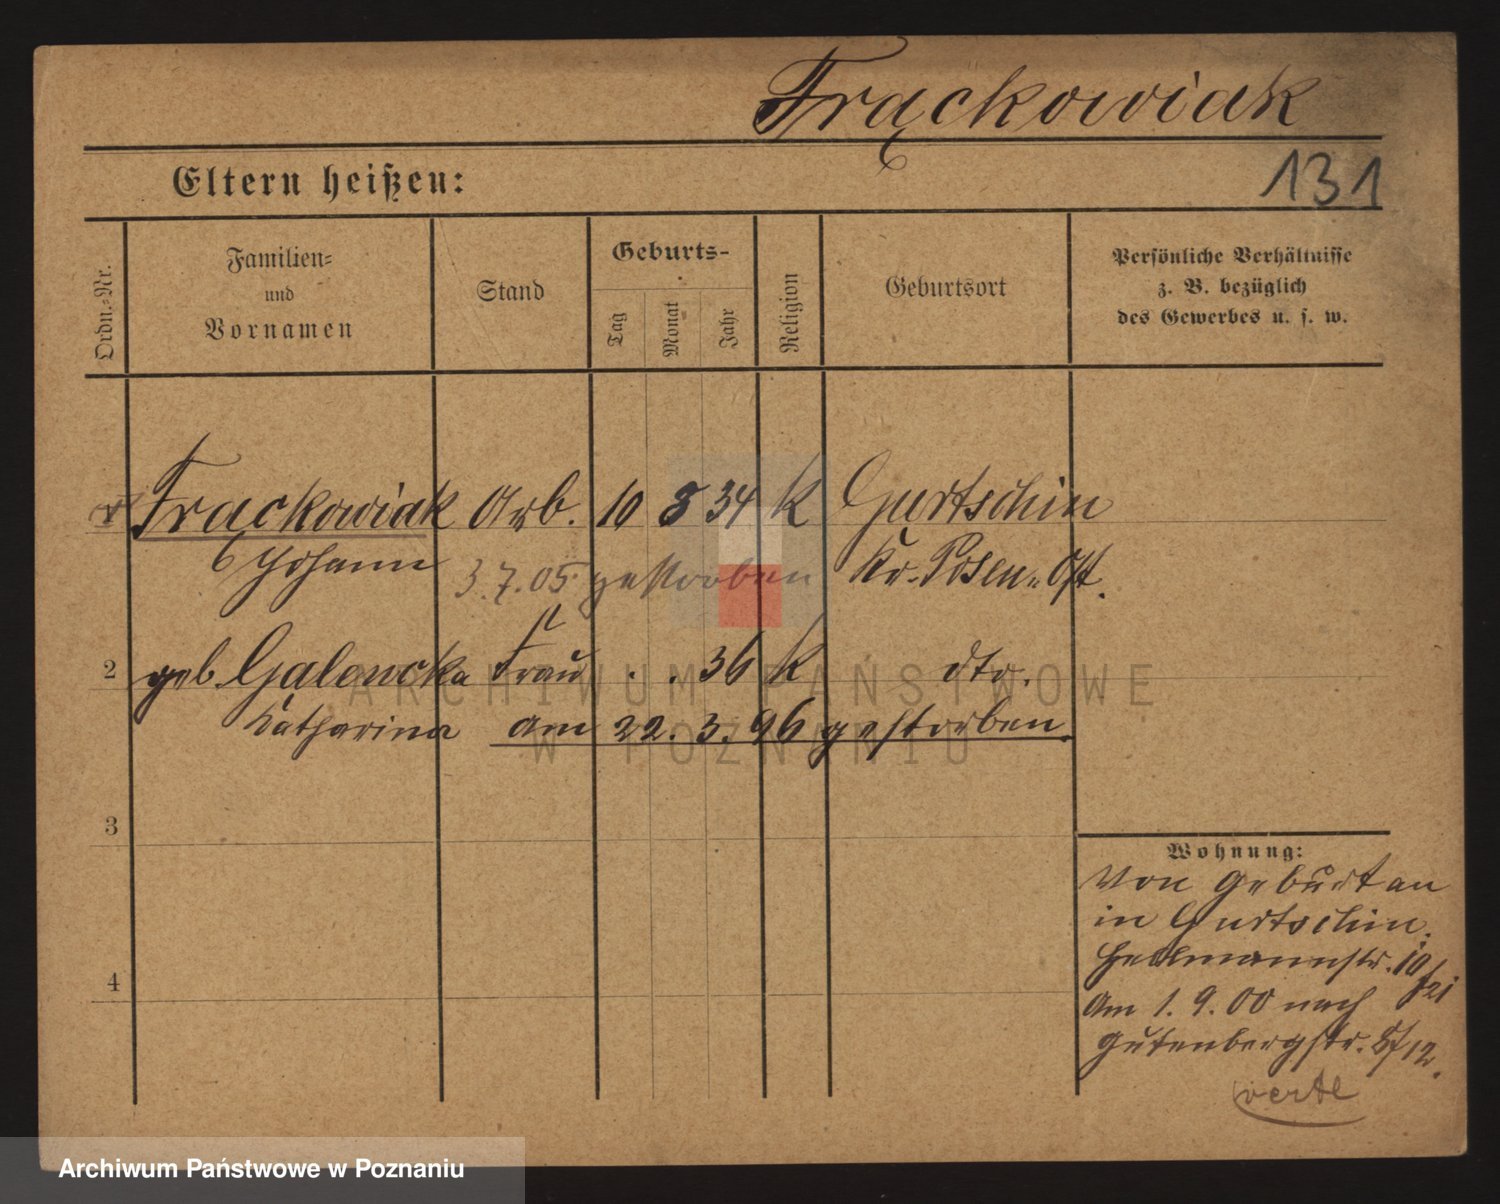 Frąckowiak
131
Eltern heißen:
Ordn.-Nr.
Familien-
und
Vornamen
Stand
Geburts-
Tag
Monat
Jahr
Religion
Geburtsort
Persönliche Verhältnisse
z. B. bezüglich
des Gewerbes u. s. w.
1 Frackowiak Arb. 10 8 34 K Gurtschin
Johann 3.7.05 gestorben Kr. Posen-Ost.
2 geb. Galewcka Frau . . 36 K dto.
Katharina am 22. 3. 96 gestorben.
3
4
Wohnung:
Von Geburt an
in Gurtschin.
Hellmannstr. 19/21
Am 1. 9. 00 nach
Gutenbergstr. 8/12.
verte
ARCHIWUM PAŃSTWOWE
W POZNANIU
Archiwum Państwowe w Poznaniu